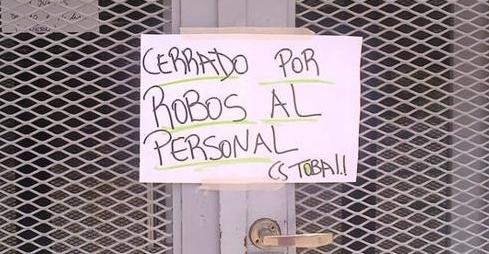 CERRADO POR
ROBOS AL
PERSONAL
CS TOBA!!